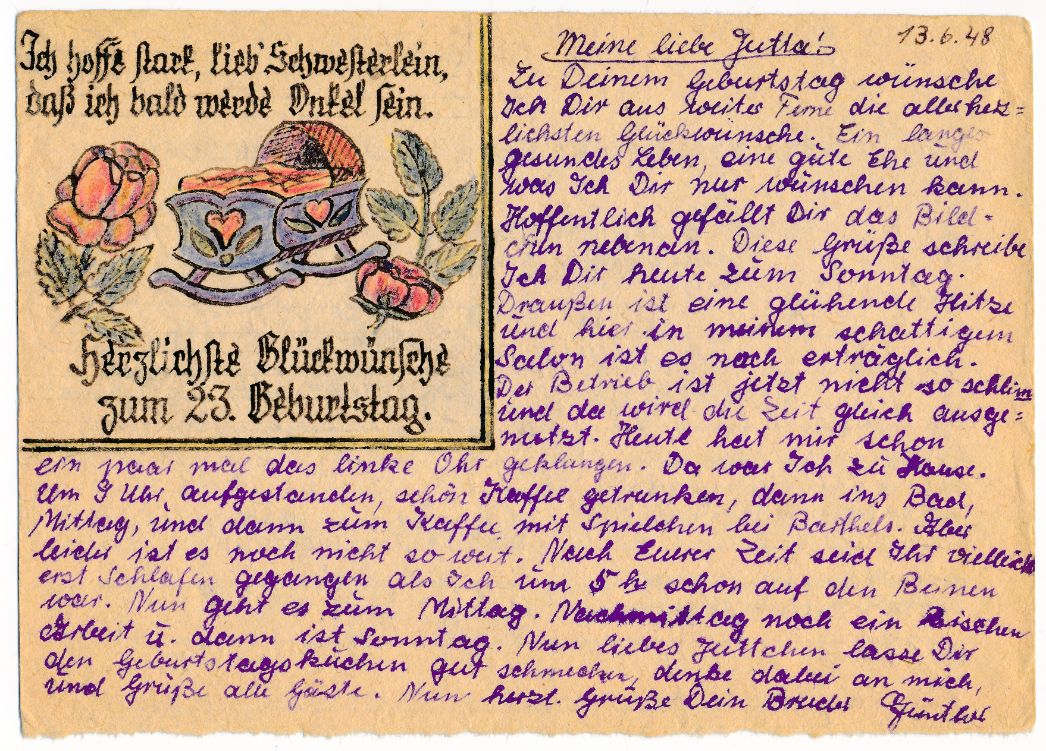 Ich hoffe stark, lieb' Schwesterlein,
daß ich bald werde Onkel sein.
Herzlichste Glückwünsche
zum 23. Geburtstag.
13.6.48
Meine liebe Jutta!
Zu Deinem Geburtstag wünsche
Ich Dir aus weiter Ferne die allerherz=
lichsten Glückwünsche. Ein langes
gesundes Leben, eine gute Ehe und
was Ich Dir nur wünschen kann.
Hoffentlich gefällt Dir das Bild-
chen nebenan. Diese Grüße schreibe
Ich Dir heute zum Sonntag.
Draußen ist eine glühende Hitze
und hier in meinem schattigem
Salon ist es noch erträglich.
Der Betrieb ist jetzt nicht so schlimm
und da wird die Zeit gleich ausge=
nutzt. Heute hat mir schon
ein paar mal das linke Ohr geklungen. Da war Ich zu Hause.
Um 9 Uhr, aufgestanden, schön Kaffee getrunken, dann ins Bad,
Mittag, und dann zum Kaffee mit Spielchen bei Barthels. Aber
leider ist es noch nicht so weit. Nach Eurer Zeit seid Ihr vielleicht
erst Schlafen gegangen als Ich um 5 h schon auf den Beinen
war. Nun geht es zum Mittag. Nachmittag noch ein bischen
Arbeit u. dann ist Sonntag. Nun liebes Juttchen lasse Dir
den Geburtstagskuchen gut schmecken, denke dabei an mich,
und Grüße alle Gäste. Nun herzl. Grüße Dein Bruder Günther